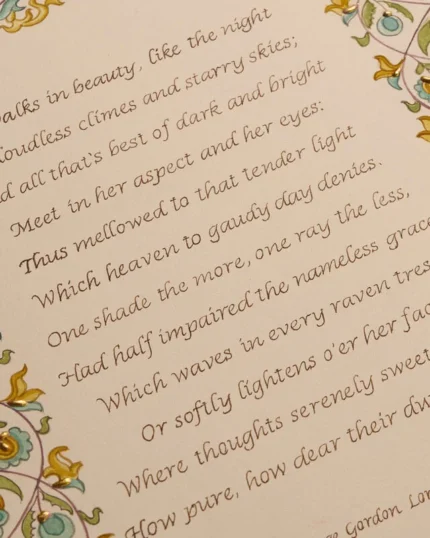 alks in beauty, like the night
loudless climes and starry skies;
d all that's best of dark and bright
Meet in her aspect and her eyes:
Thus mellowed to that tender light
Which heaven to gaudy day denies.
One shade the more, one ray the less,
Had half impaired the nameless grac
Which waves in every raven tres
Or softly lightens o'er her fac
Where thoughts serenely sweet
How pure, how dear their dw
Gordon Lor